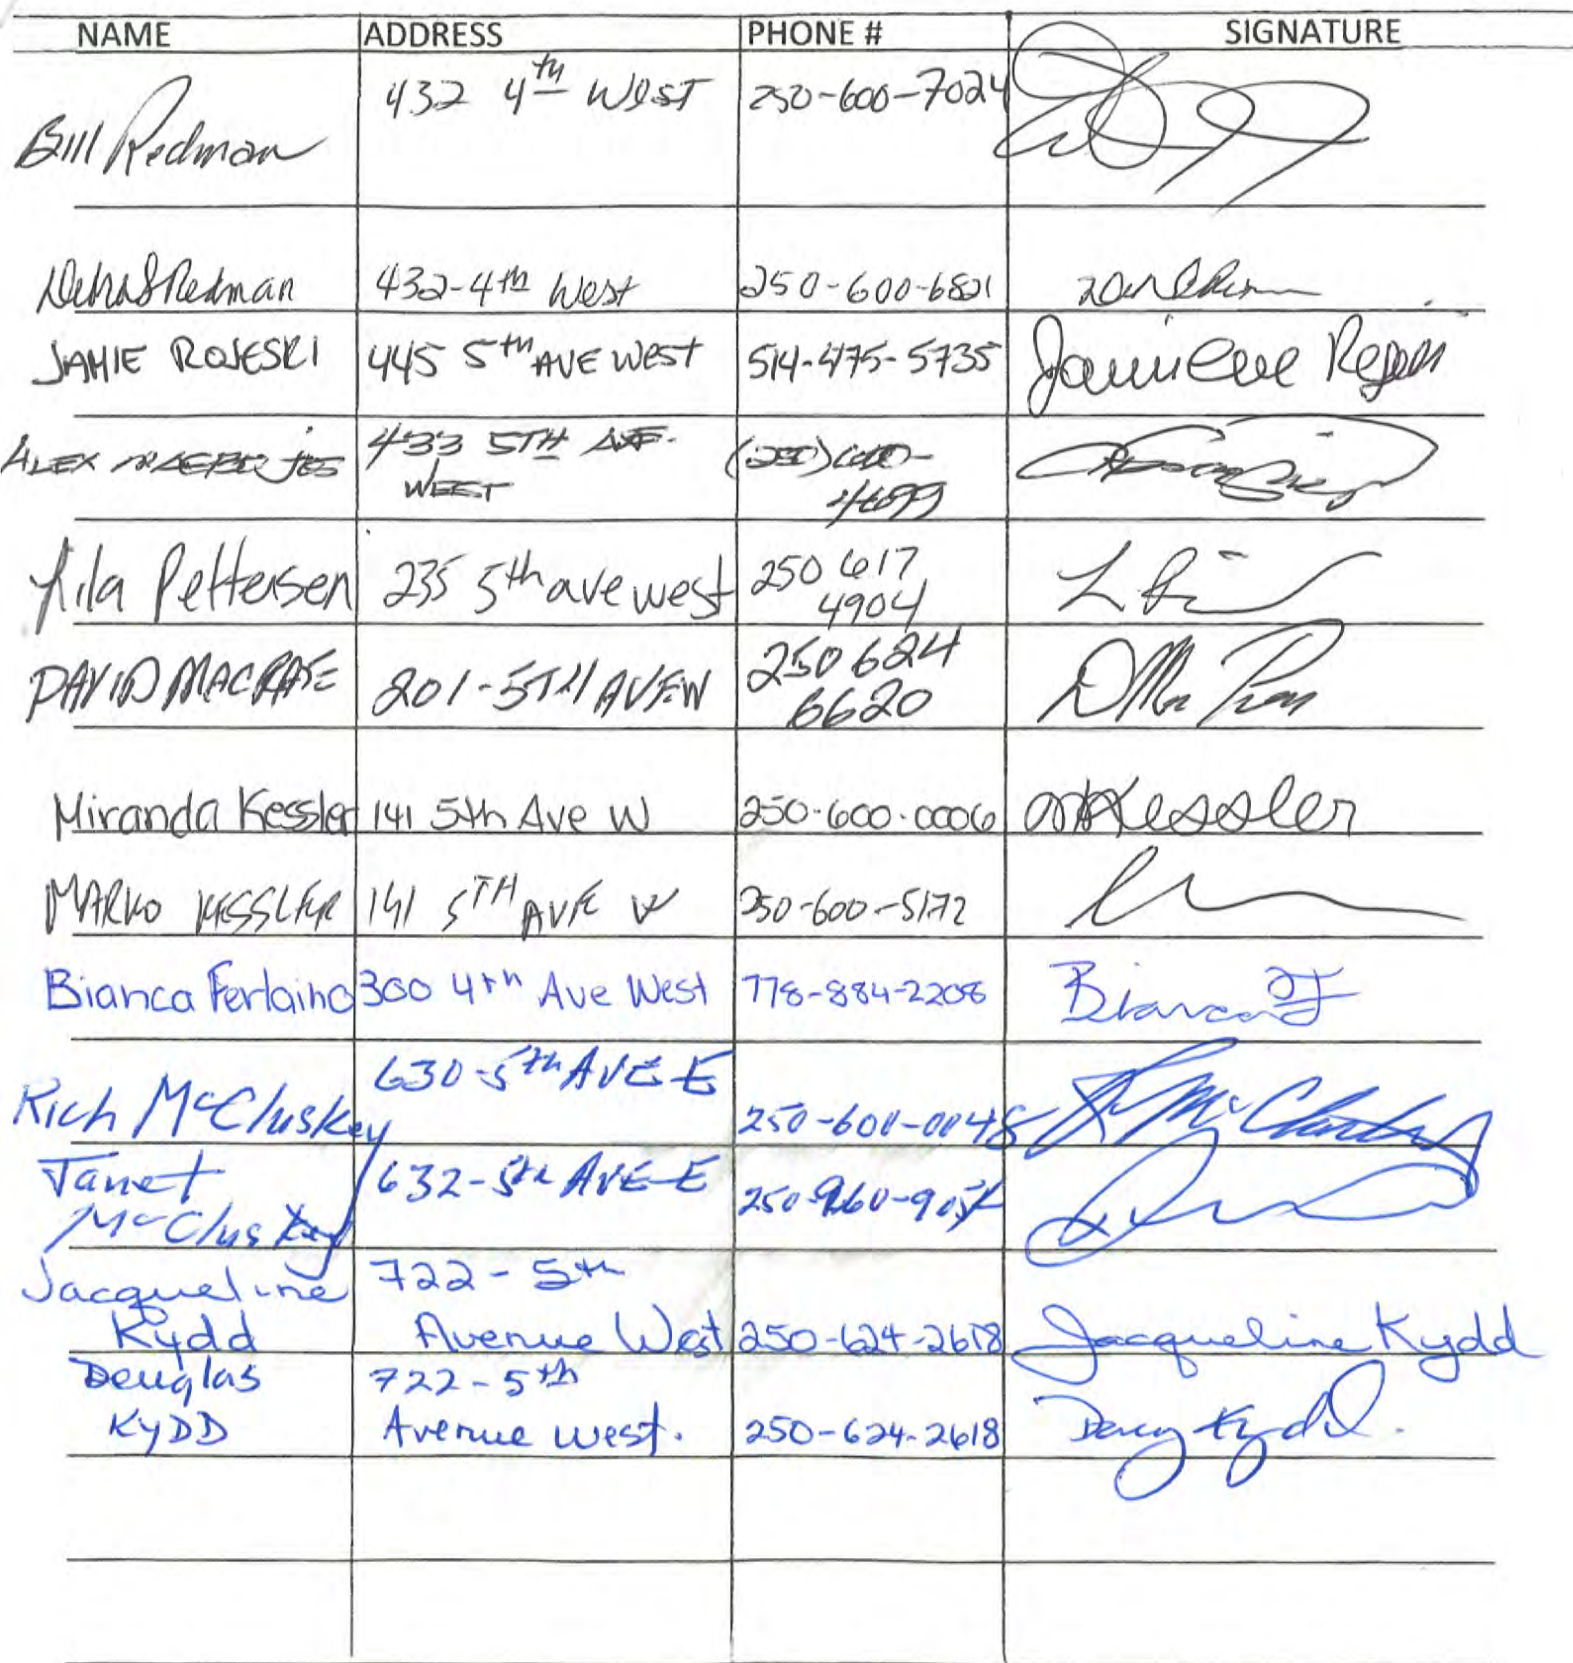 NAME ADDRESS PHONE # SIGNATURE
Bill Redman 432 4th West 250-600-7024
Redman 432-4th West 250-600-6821
JAMIE ROJESKI 445 5th AVE West 514-475-5735
ALEX 433 5TH AVE.
WEST
4699
Lila Pettersen 235 5th ave west 250 617
4904
DAVID MACRAE 201-5TH AVE W 250 624
6620
Miranda Kessler 141 5th Ave W 250-600-0006 MKessler
MARKO KESSLER 141 5TH AVE W 250-600-5172
Bianca Ferlaino 300 4th Ave West 778-884-2208 Bianca F
Rich McCluskey 630-5th AVE E 250-600-0048 McCluskey
Janet 632-5th AVE E
McCluskey
Jacqueline 722-5th
Kydd Avenue West 250-624-2618 Jacqueline Kydd
Douglas 722-5th
KYDD Avenue West. 250-624-2618 Doug Kydd.